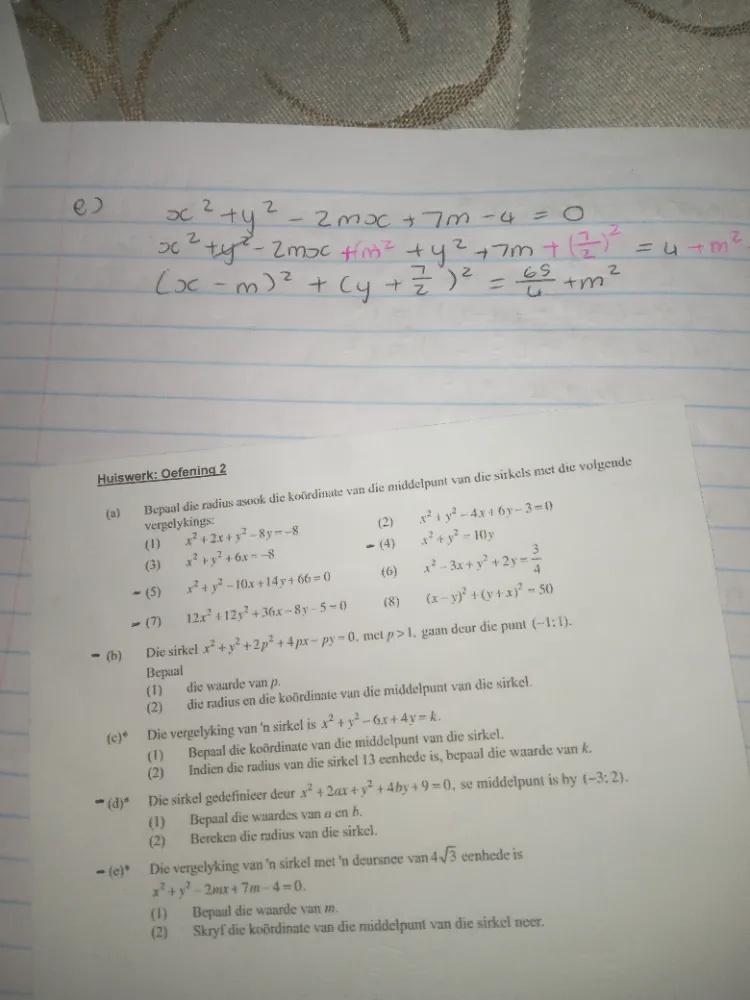 e) x² + y² - 2mx + 7m - 4 = 0
x² + y² - 2mx + m² + y² + 7m + (7/2)² = 4 + m²
(x - m)² + (y + 7/2)² = 65/4 + m²
Huiswerk: Oefening 2
(a) Bepaal die radius asook die koördinate van die middelpunt van die sirkels met die volgende
vergelykings:
(1) x² + 2x + y² - 8y = -8 (2) x² + y² - 4x + 6y - 3 = 0
(3) x² + y² + 6x = -8 - (4) x² + y² = 10y
- (5) x² + y² - 10x + 14y + 66 = 0 (6) x² - 3x + y² + 2y = 3/4
- (7) 12x² + 12y² + 36x - 8y - 5 = 0 (8) (x - y)² + (y + x)² = 50
- (b) Die sirkel x² + y² + 2p² + 4px - py = 0, met p > 1, gaan deur die punt (-1; 1).
Bepaal
(1) die waarde van p.
(2) die radius en die koördinate van die middelpunt van die sirkel.
(c)* Die vergelyking van 'n sirkel is x² + y² - 6x + 4y = k.
(1) Bepaal die koördinate van die middelpunt van die sirkel.
(2) Indien die radius van die sirkel 13 eenhede is, bepaal die waarde van k.
- (d)* Die sirkel gedefinieer deur x² + 2ax + y² + 4by + 9 = 0, se middelpunt is by (-3; 2).
(1) Bepaal die waardes van a en b.
(2) Bereken die radius van die sirkel.
- (e)* Die vergelyking van 'n sirkel met 'n deursnee van 4√3 eenhede is
x² + y² - 2mx + 7m - 4 = 0.
(1) Bepaal die waarde van m.
(2) Skryf die koördinate van die middelpunt van die sirkel neer.